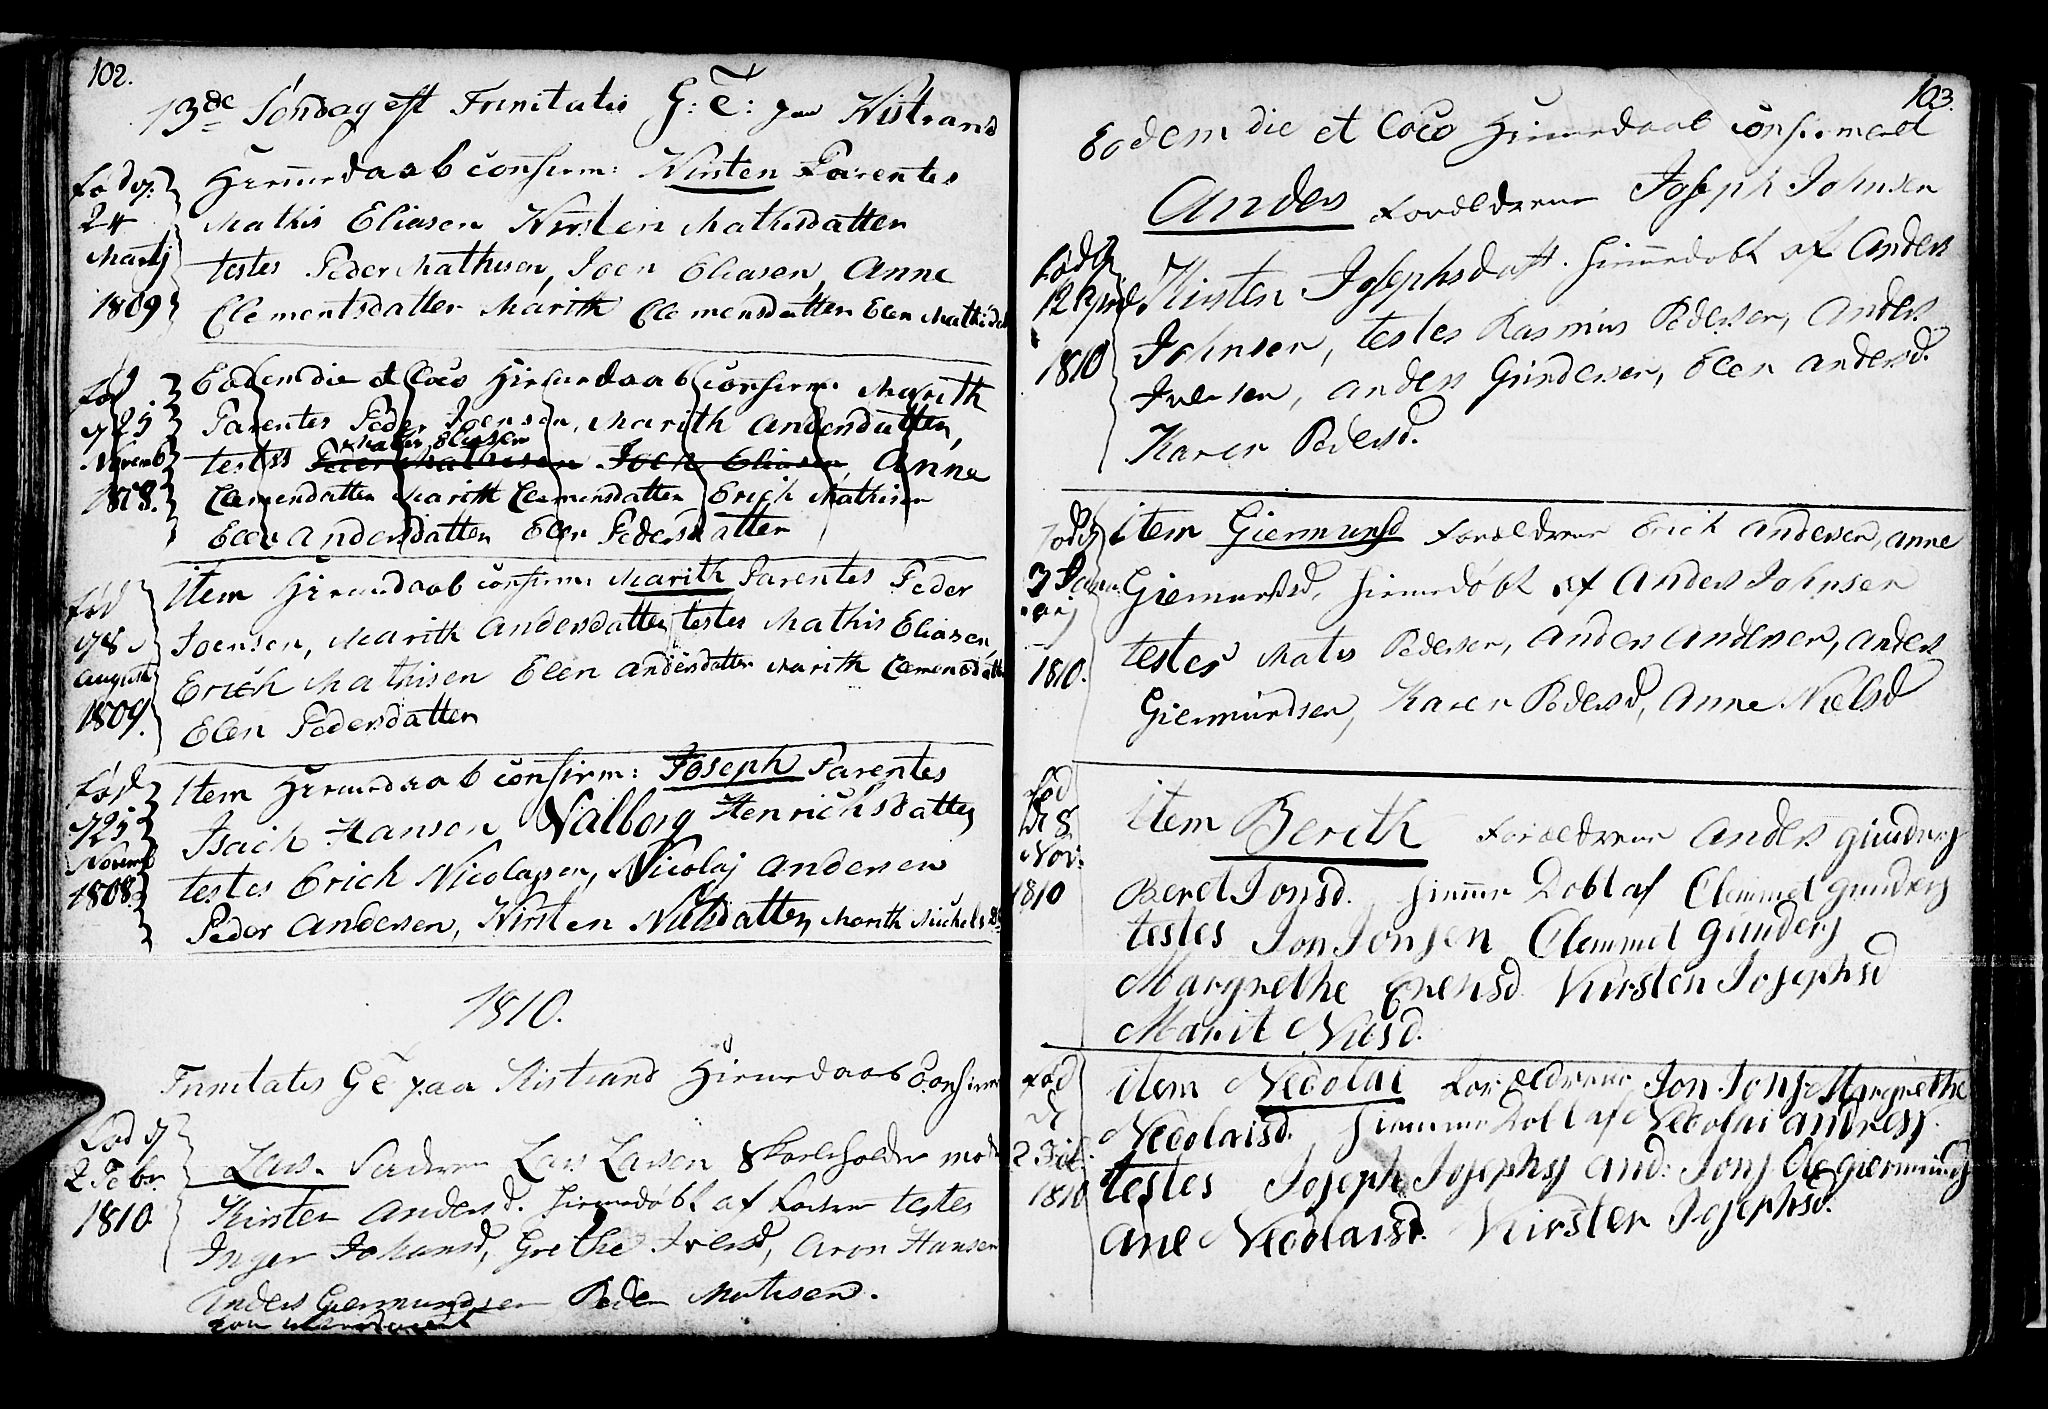 102.
13de Søndag eft Trinitatis G: T: paa Kistrand
fød d.
24
Martj
1809
Hiemedaab confirm: Kirsten Parentes
Mathis Eliasen Kirsten Mathisdatter
testes Peder Mathisen, Joen Eliasen, Anne
Clementsdatter Marith Clemensdatter Elen Mathisdatt
fød
d 25
Novemb
1808.
Eodem die et loco Hiemedaab confirm: Marith
Parentes Peder Joensen, Marith Andersdatter,
Mathis Eliasen
testes Peder Mathisen Joen Eliasen, Anne
Clemendatter Marith Clemensdatter Erich Mathisen
Elen Andersdatter Elen Pedersdatter
fød
d 8
August
1809.
Item Hiemedaab confirm: Marith Parentes Peder
Joensen, Marith Andersdatter testes Mathis Eliasen,
Erich Mathisen Elen Andersdatter Marith Clemensdatt
Elen Pedersdatter
fød
d 25
Novemb
1808.
Item Hiemedaab confirm: Joseph Parentes
Isach Hansen Valborg Henrichsdatter
testes Erich Nicolaysen, Nicolaj Andersen
Peder Andersen, Kirsten Nilsdatter, Marith Michelsd
1810.
Trinitatis G T paa Kistrand Hiemedaab Confirm
Fød d
2 Febr.
1810
Lars. Faderen Lars Larsen Skoleholder mod
Kirsten Andersd. hiemedøbt af Faderen testes
Inger Johansd, Grethe Iversd, Aron Hansen
Anders Giermundsen Peder Matisen.
103.
Eodem die et loco Hiemedaab confirmeret
Anders Forældrene Joseph Johnsen
fød d
12 April
1810
Kirsten Josephsdatt. hiemedøbt af Anders
Johnsen, testes Rasmus Pedersen, Anders
Iversen, Anders Gundersen, Elen Andersd.
Karen Pedersd.
Fød d
3 Janu
arj
1810.
item Giermund Forældrene Erich Andersen, Anne
Giermundsd, hiemedøbt af Anders Johnsen
testes Matis Pedersen, Anders Andersen, Anders
Giermundsen, Karen Pedersd, Anne Nielsd
fød
d 8
Nov.
1810
Item Berith Forældrene Anders gunders
Beret Jonsd. hiemme Døbt af Clemmet gunders
testes Jon Jonsen Clemmet gunders
Margrethe Evensd Kirsten Josephsd
Marit Nilsd.
Fød
d
2 Feb.
1810
item Nicolai Forældrene Jon Jons Margrethe
Nicolaisd. hiemme Døbt af Nicolai andress.
testes Joseph Josephs And: Jons Ole giermunds
Ane Nicolaisd. Kirsten Josephsd.